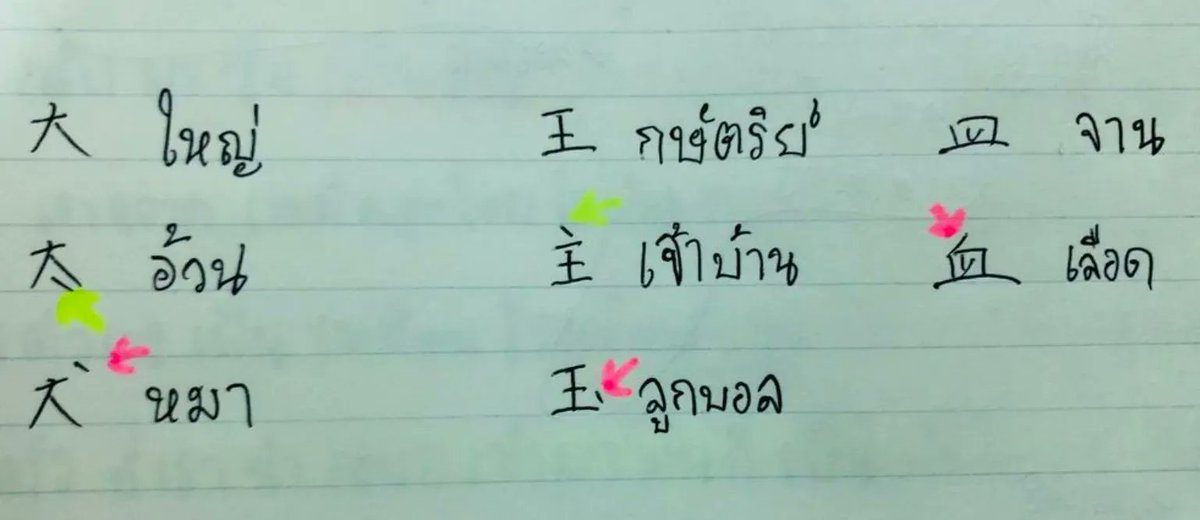 大 ใหญ่ 王 กษัตริย์ 皿 จาน
太 อ้วน 主 เจ้าบ้าน 血 เลือด
犬 หมา 玉 ลูกบอล